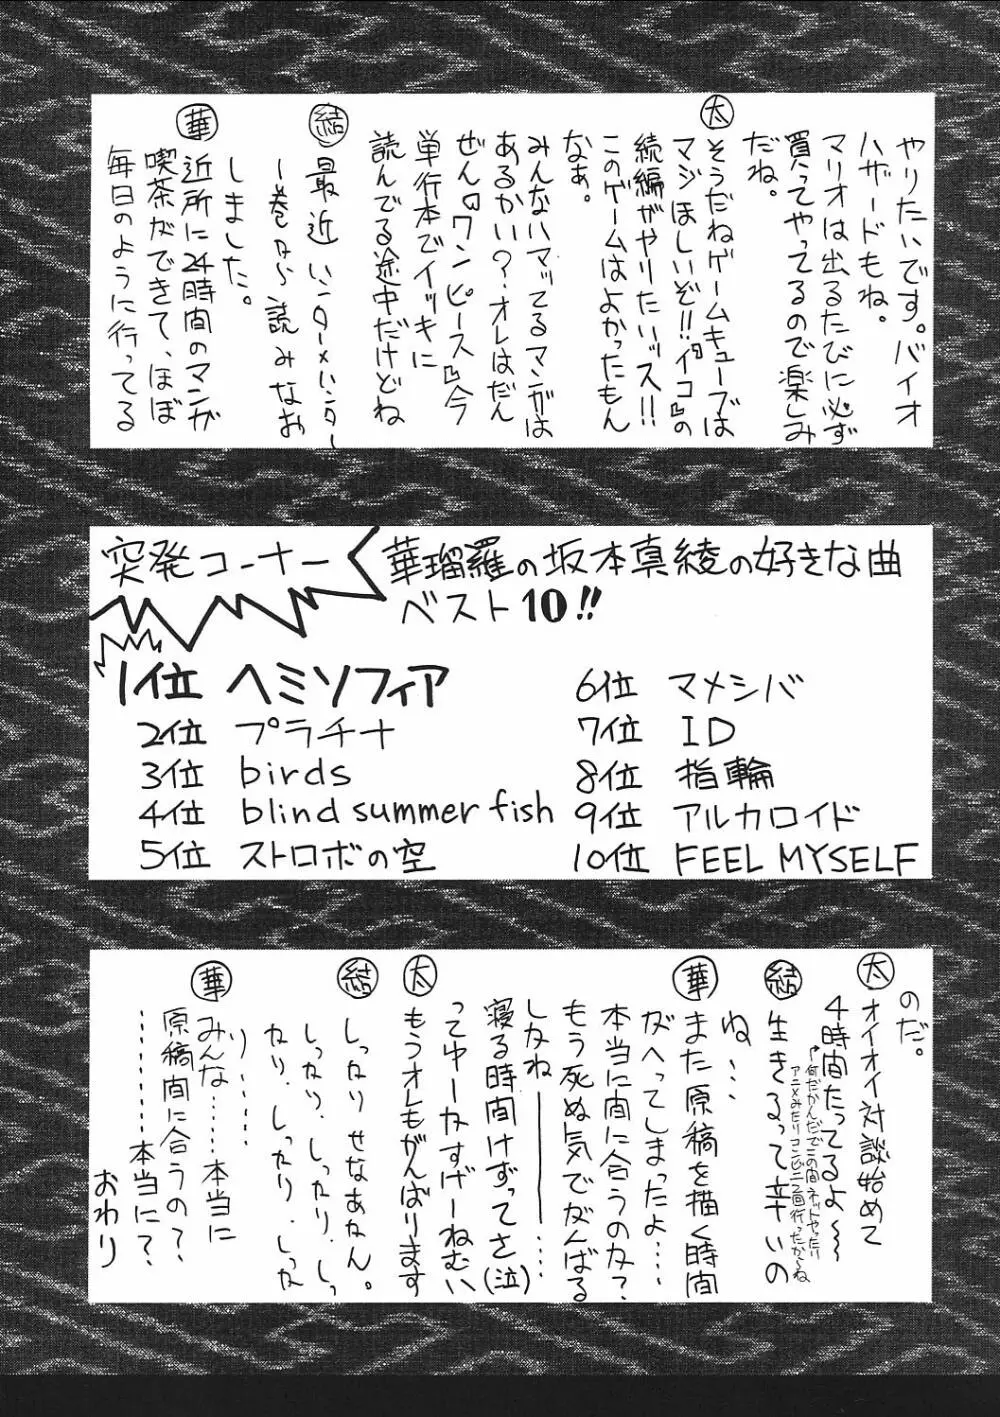 やりたいです。バイオ
ハザードもね。
マリオは出るたびに必ず
買ってやってるので楽しみ
だね。
太 そうだねゲームキューブは
マジほしいぞ!!『イコ』の
続編がやりたいッス!!
このゲームはよかったもん
なぁ。
みんなハマッてるマンガは
あるかい?オレはだん
ぜん『ワンピース』今
単行本でイッキに
読んでる途中だけどね
結 最近ハンターハンター
1巻から読みなお
しました。
華 近所に24時間のマンガ
喫茶ができて、ほぼ
毎日のように行ってる
突発コーナー
華瑠羅の坂本真綾の好きな曲
ベスト10!!
1位 ヘミソフィア
2位 プラチナ
3位 birds
4位 blind summer fish
5位 ストロボの空
6位 マメシバ
7位 ID
8位 指輪
9位 アルカロイド
10位 FEEL MYSELF
のだ。
太 オイオイ対談始めて
4時間たってるよ〜〜
↑何だかんだでこの間ネットやったり
アニメみたりコンビニ2回行ったから〜ね
結 生きるって辛いの
ね・・・
華 また原稿を描く時間
がへってしまったよ・・・・
本当に間に合うのか?
もう死ぬ気でがんばる
しかね――――・・・・
寝る時間けずってさ(泣)
ってゆーかすげーねむい
太 もうオレもがんばります
結 しっかりせなあかん。
しっかり.しっかり.しっ
かり.しっかり.しっか
り・・・・・・
華 みんな・・・・・本当に
原稿間に合うの?
・・・・・・・・本当に?
おわり